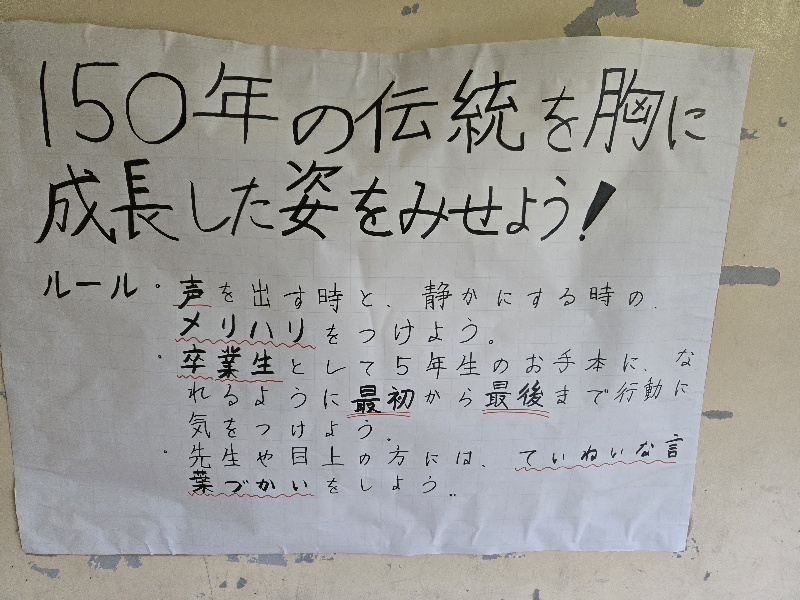 150年の伝統を胸に
成長した姿をみせよう!
ルール・声を出す時と、静かにする時の
メリハリをつけよう。
・卒業生として5年生のお手本に、な
れるように最初から最後まで行動に
気をつけよう。
・先生や目上の方には、ていねいな言
葉づかいをしよう。